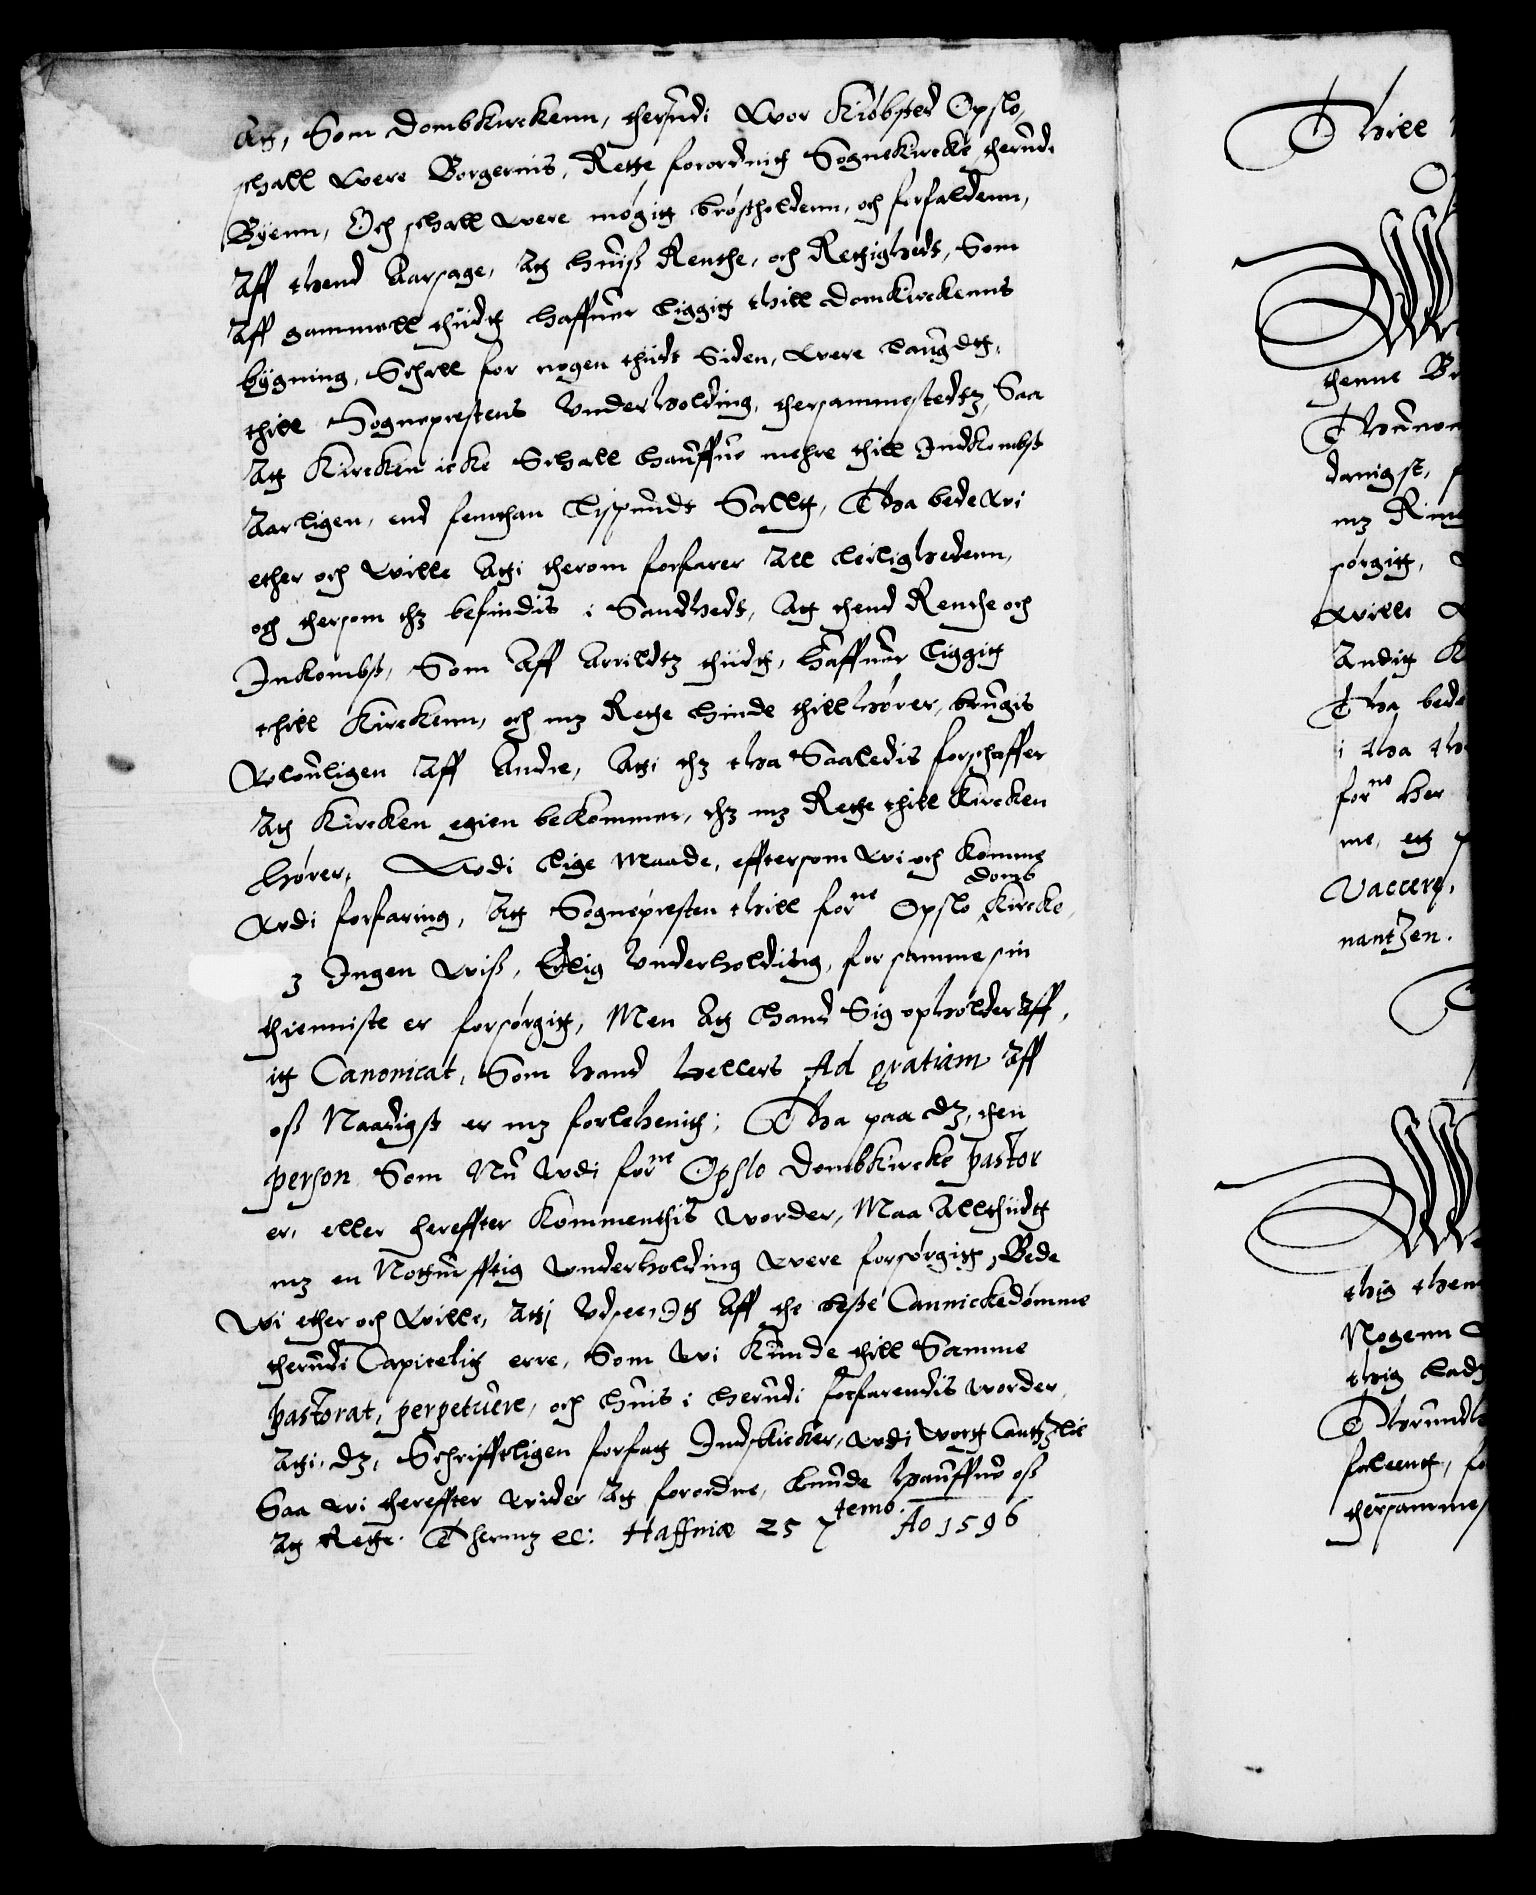 Att, Som Dombkirckenn, therudi Wor Kiøbsted Opslo,
schall were Borgernis, Rette forordnith Sognekircke therudi
Byenn, Och schall were møgitt brøstholdenn, och forfaldenn,
Aff thend Aarsage, Att huis Renthe, och Rettigheds, Som
Aff gammell thiidt haffuer liggitt thill Domkirckenns
bygning, Schall for nogen thiidt Siden, were laugdtt,
thill Sogneprestens Underholding, thersammestedtz, Saa
Att Kircken icke Schall hauffue mehre thill Indkombst
Aarligen, end femthan lispundt Salltt, Tha bede wi
ether och wille Atti therom forfarer All leilighedenn,
och thersom thz befindis i Sandheds, Att thend Renthe och
Inkombst, Som Aff Arrildtz thiidt, haffuer liggitt
thill Kirckenn, och mz Rette hinde thillhører, brugis
wlouligen Aff Andre, Atti thz tha Saaledis forschaffer
Att Kircken egien bekommer, thz mz Rette thill Kircken
hører, Wdi lige Maade, efftersom wi och Komme
wdi forfaring, Att Sognepresten thill forne Opslo doms Kircke,
z Ingen wiss, Erlig Underholding, for samme sin
thienniste er forsørgitt, Men Att hand Sig opholder Aff,
itt Canonicat, Som hand hellers Ad gratiam Aff
oss Naadigst er mz forlehenit; Tha paa dz, then
person Som Nu wdi forne Opslo Dombkircke pastor
er, eller hereffter Kommenthis worder, Maa Allthiidt
mz en Notturfftig underholding were forsørgitt, Bede
Wi ether och wille, Attj Udseer, Itt Aff the beste Cannickedømme
therudi Capitelit erre, Som wi Kunde thill Samme
pastorat, perpetuere, och huis i herudi forfarendis worder,
Atti, dz, Schrifftligen forfatt Indskicker, wdi wortt Cantzlie
Saa wi thereffter wider Att forordne, kunde hauffue oss
Att Rette. Thermz etc: Haffniæ 25 7temo. Ao 1596
Thill
thenne
danigst,
mz
sørgitt,
wille
Andit
Tha bede
i tha
forne her
me, ett
Vaccere,
nantzen.
thig
Nogenn
thig
thersammes